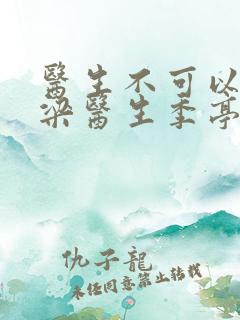 醫生不可以
梁醫生季亭
仇子龍
未經同意禁止轉載